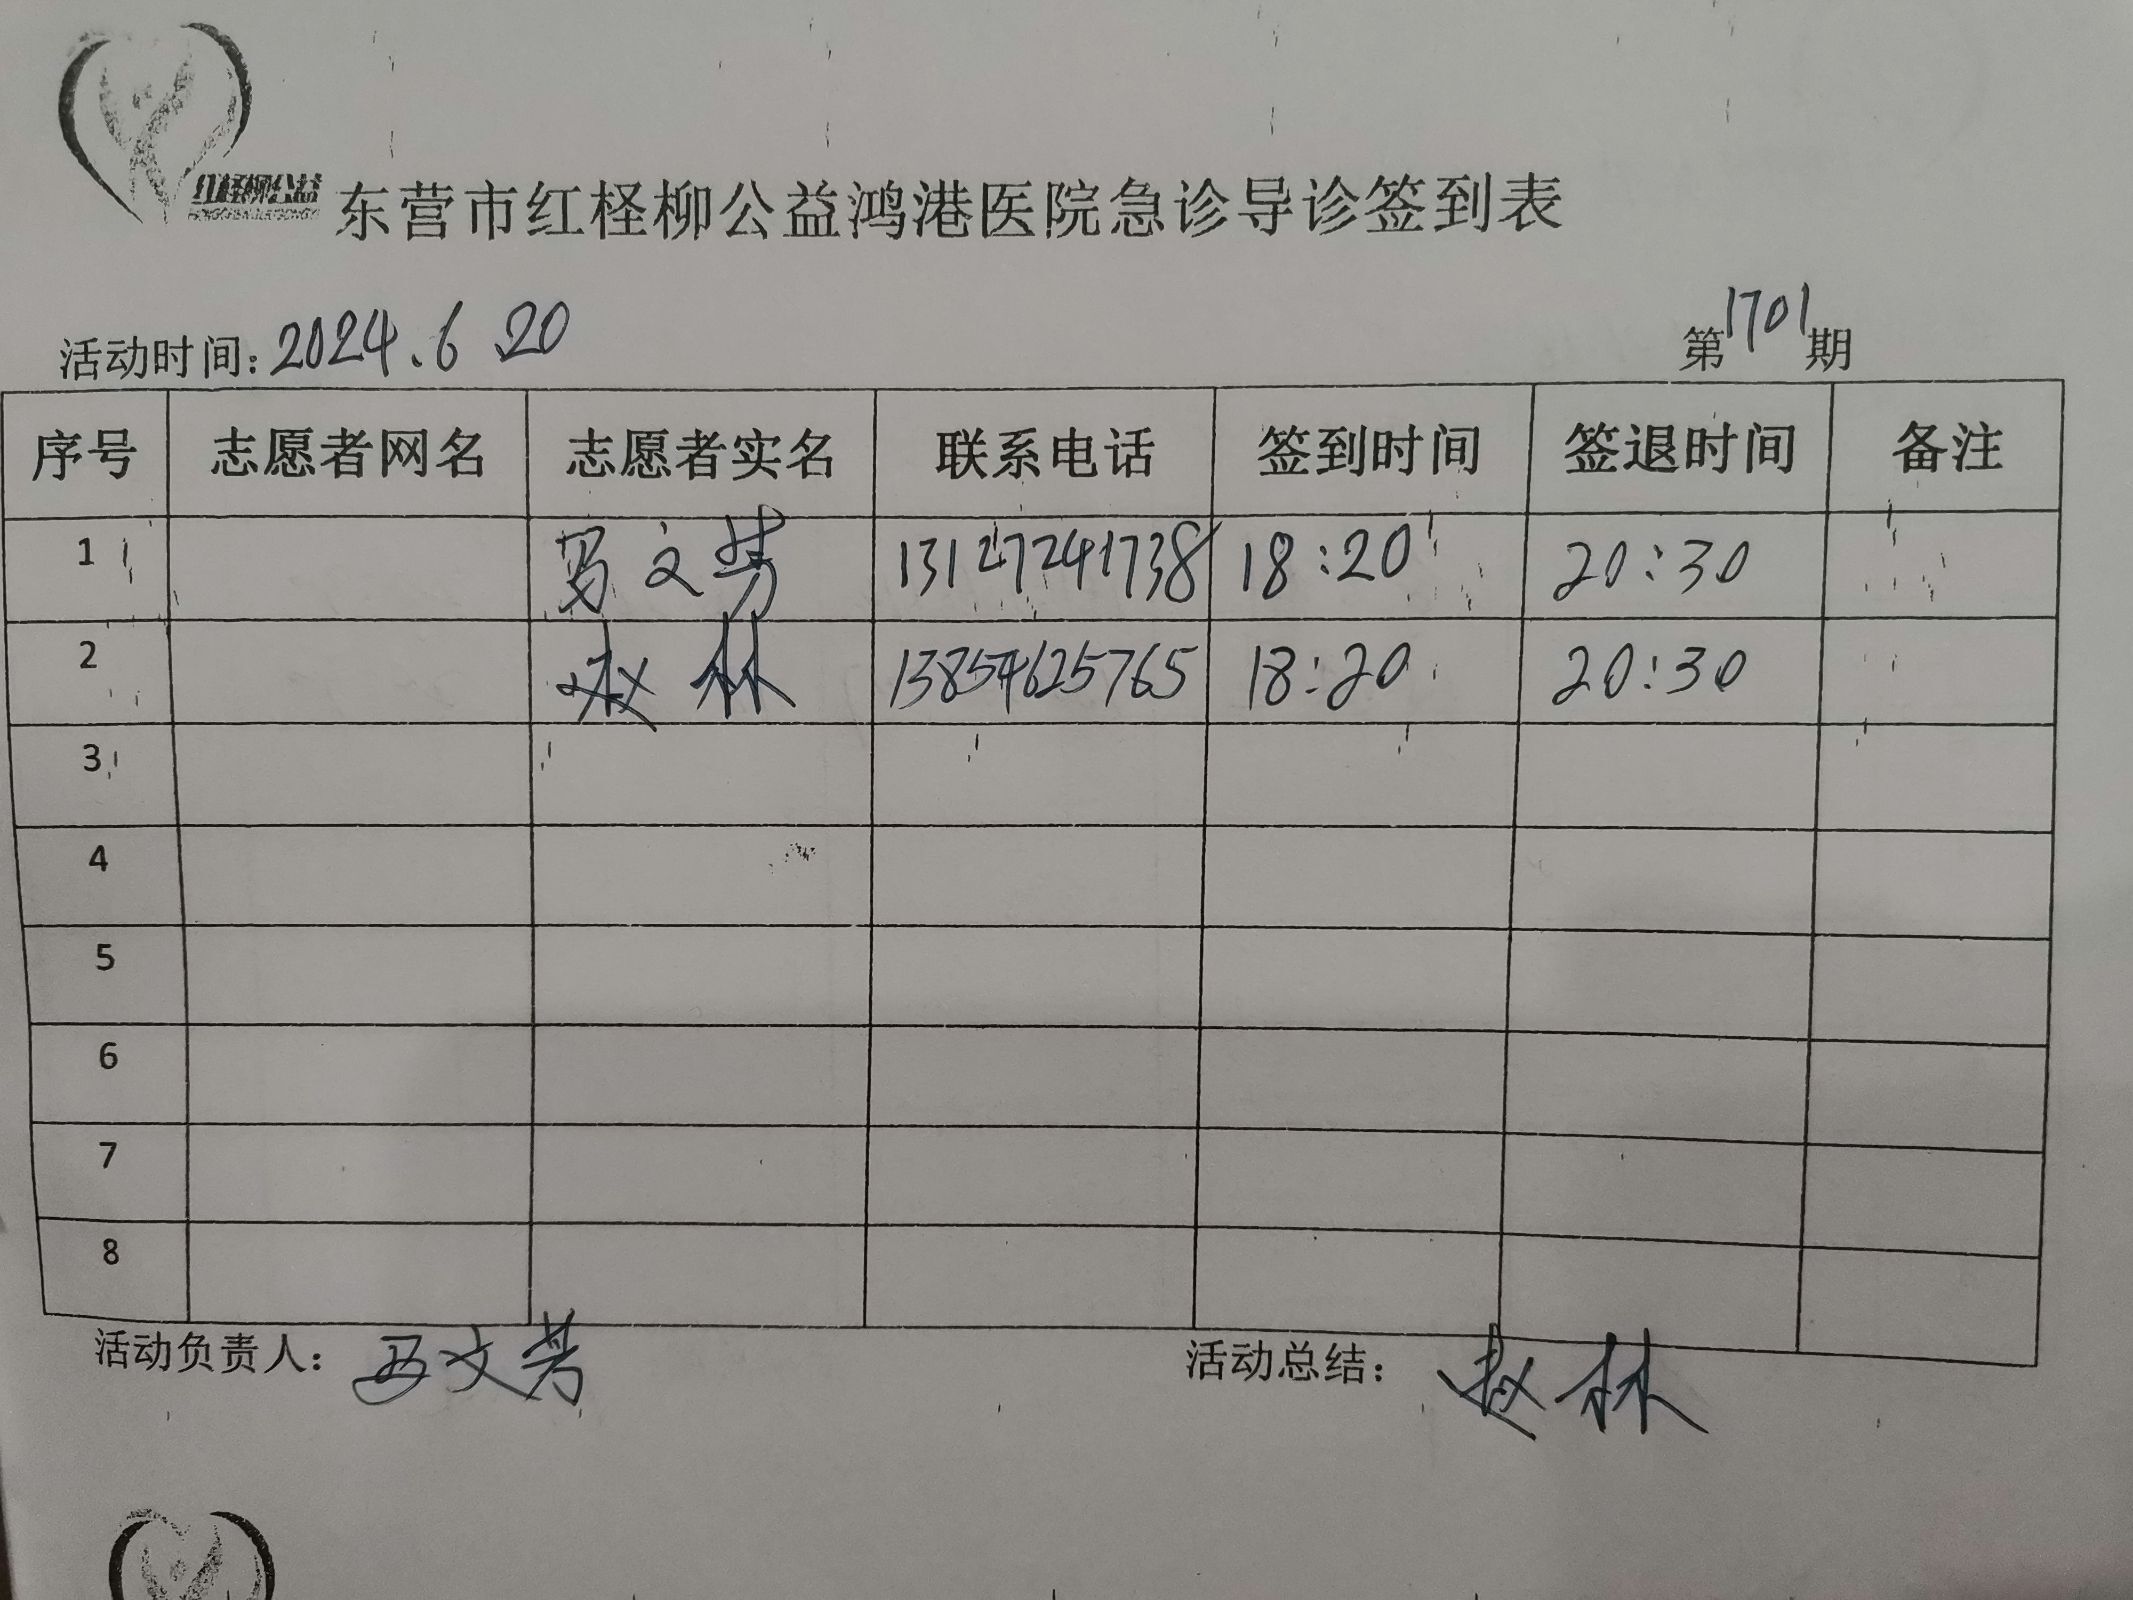 红柽柳公益
东营市红柽柳公益鸿港医院急诊导诊签到表
活动时间: 2024.6.20 第1701期
序号 志愿者网名 志愿者实名 联系电话 签到时间 签退时间 备注
1 文芳 13127241738 18:20 20:30
2 赵林 13854625765 18:20 20:30
3
4
5
6
7
8
活动负责人: 文芳 活动总结: 赵林